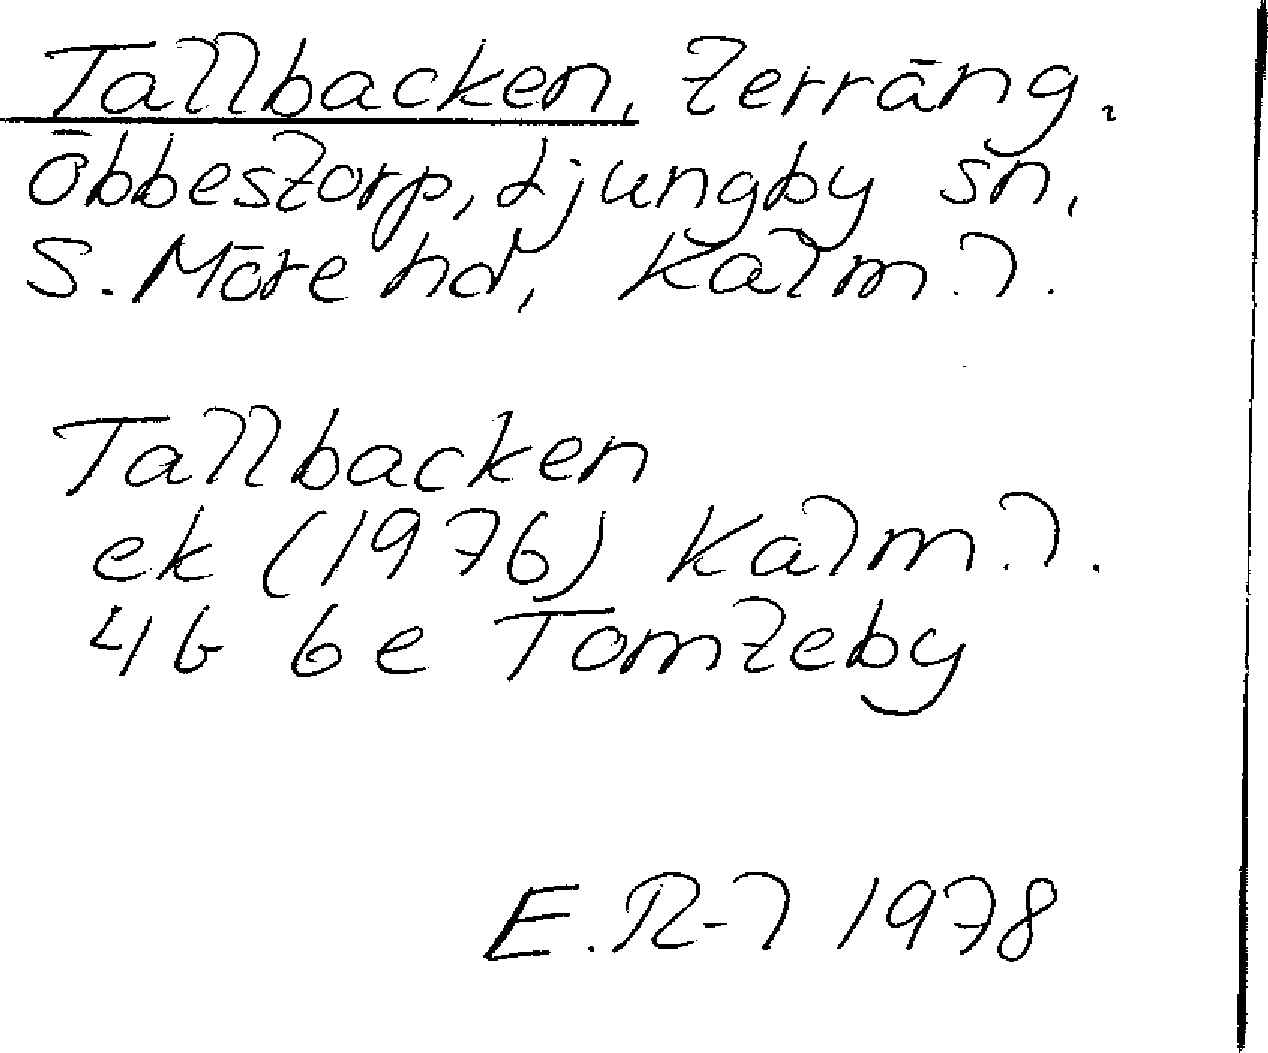 Tallbacken, terräng.
Öbbestorp, Ljungby sn,
S. Möre hd, Kalm. l.
Tallbacken
ek (1976) Kalm. l.
4G 6e Tomteby
E. R-l 1978